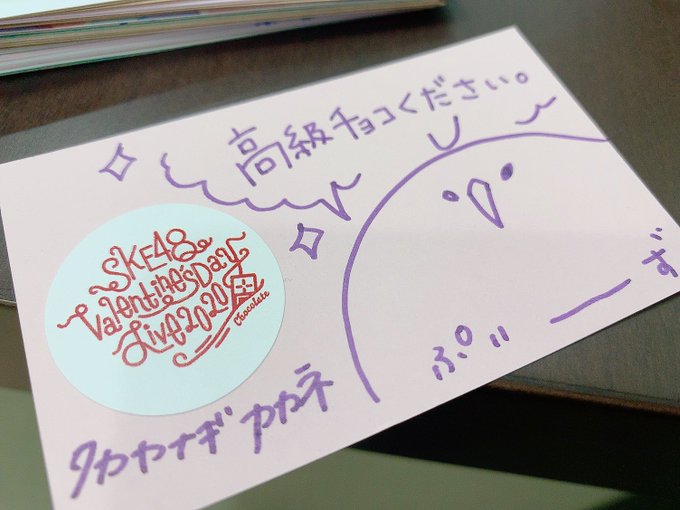 高級チョコください。
SKE48
Valentine's Day
Live 2020
Chocolate
ぷりーず
タカヤナギ アカネ